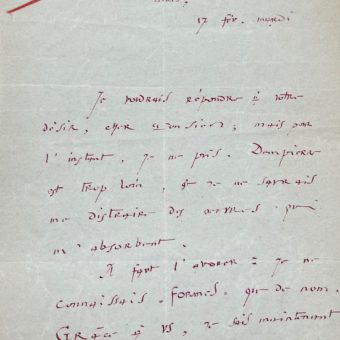 17 fév. mardi
Je voudrais répondre à votre
désir, cher monsieur ; mais par
l'instant, je ne puis. Dampierre
est trop loin, & je ne saurais
me distraire des œuvres qui
m'absorbent.
Il faut l'avouer : je ne
connaissais - Formes - que de nom.
Grâce à vs, je sais maintenant